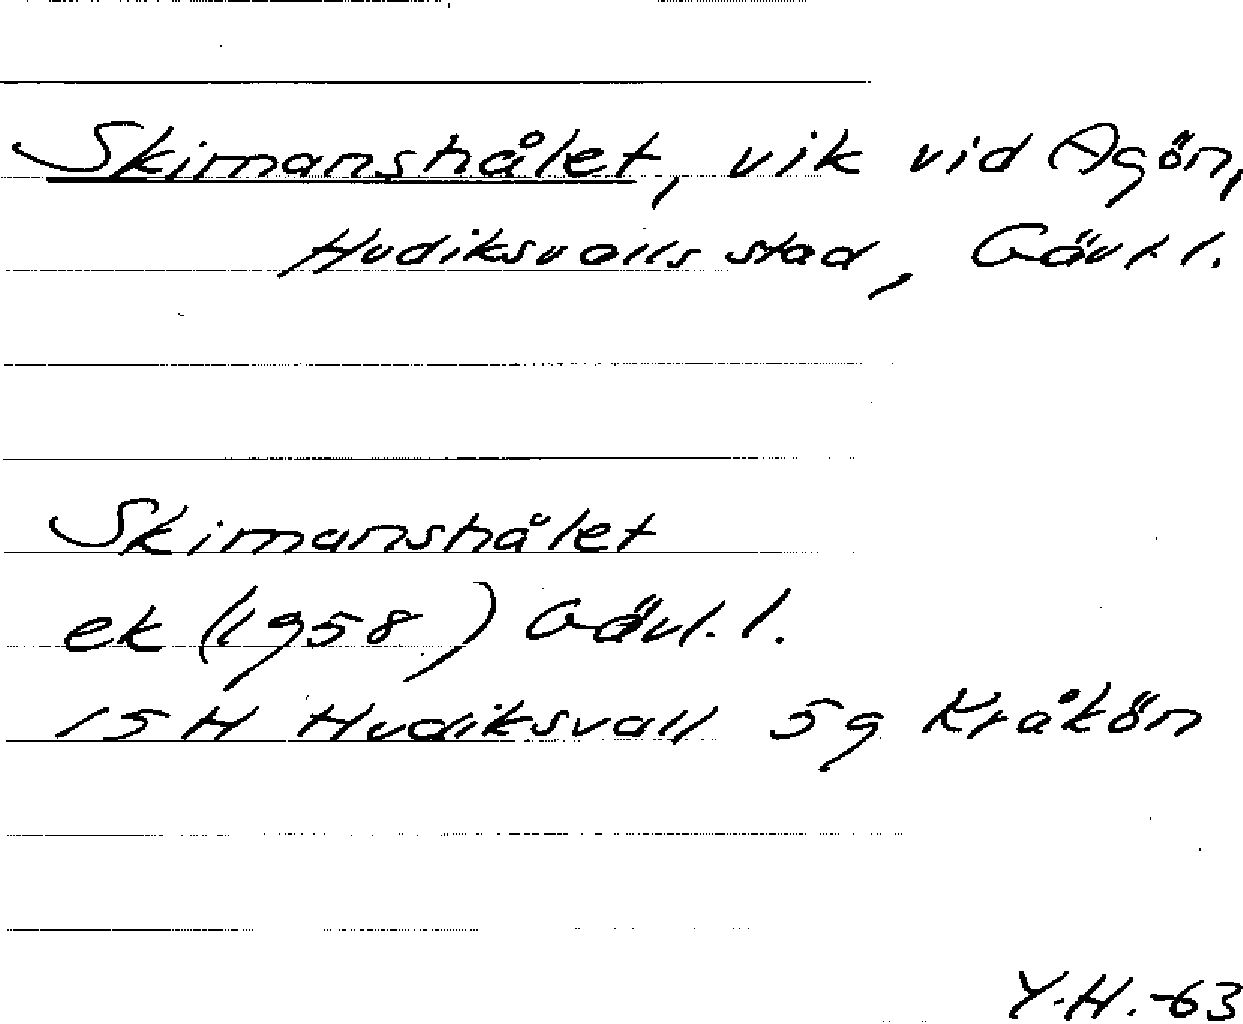 Skimanshålet, vik vid Agön,
Hudiksvalls stad, Gävl. l.
Skimanshålet
ek (1958) Gävl. l.
15 H Hudiksvall 5g Kråkön
Y.H.-63